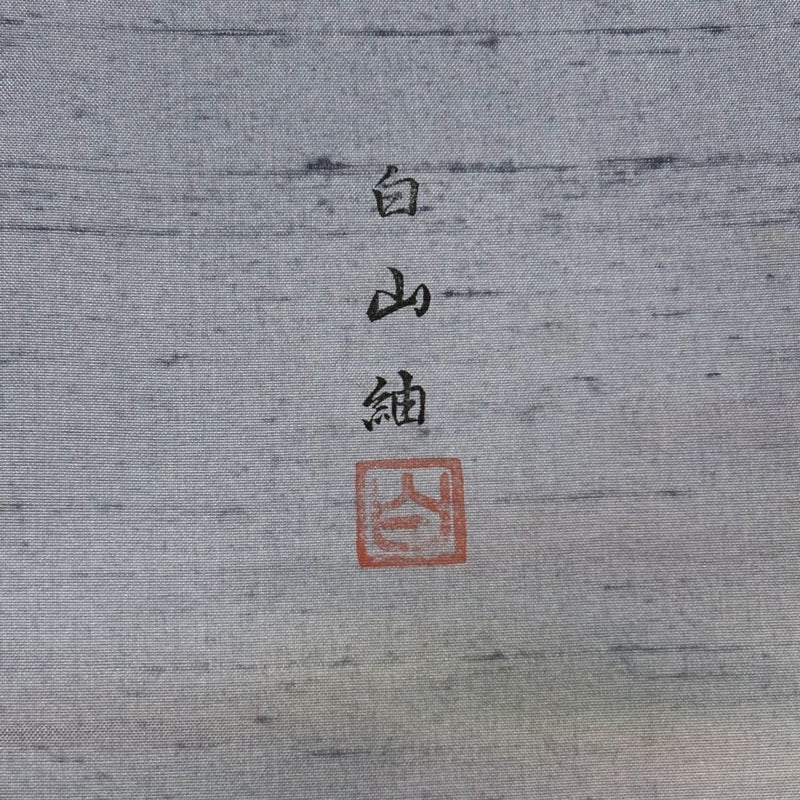 白山紬